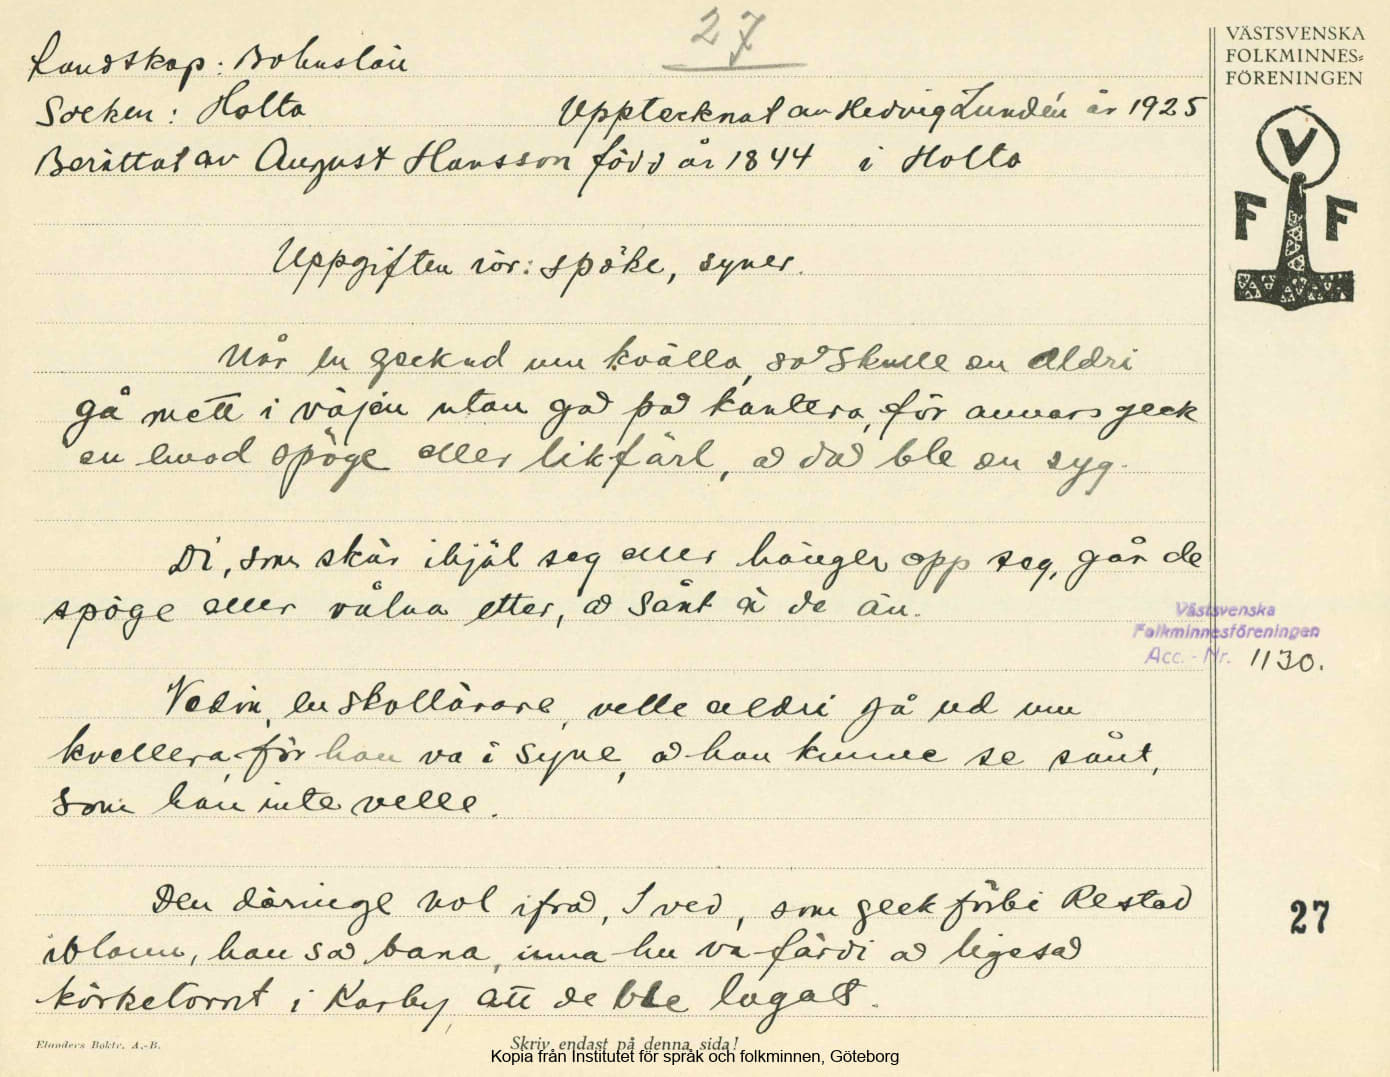 27
VÄSTSVENSKA
FOLKMINNES=
FÖRENINGEN
V
F F
Landskap: Bohuslän
Socken: Holta Upptecknat av Hedvig Lundén år 1925
Berättat av August Hansson född år 1844 i Holta
Uppgiften rör: spöke, syner.
Når en geck ud um kvälla, så skulle en aldri
gå mett i väjen utan gå på kantera, för annars geck
en emod spöge eller likfärl, å då ble en syg.
Di, som skär ihjäl seg eller hänger opp seg, går de
spöge eller vålna etter, å sånt ä de än.
Västsvenska
Folkminnesföreningen
Acc.-Nr. 1130.
Vedin, en skollärare, velle aldri gå ud um
kvellera, för han va i syne, å han kunne se sånt,
som han inte velle.
Den däringe Nol ifrå, I ved, som geck förbi Restad
iblann, han så bana, inna hu va färdi å ligeså
körketornt i Karby, att de ble lagat.
27
Elanders Boktr. A.-B.
Skriv endast på denna sida!
Kopia från Institutet för språk och folkminnen, Göteborg